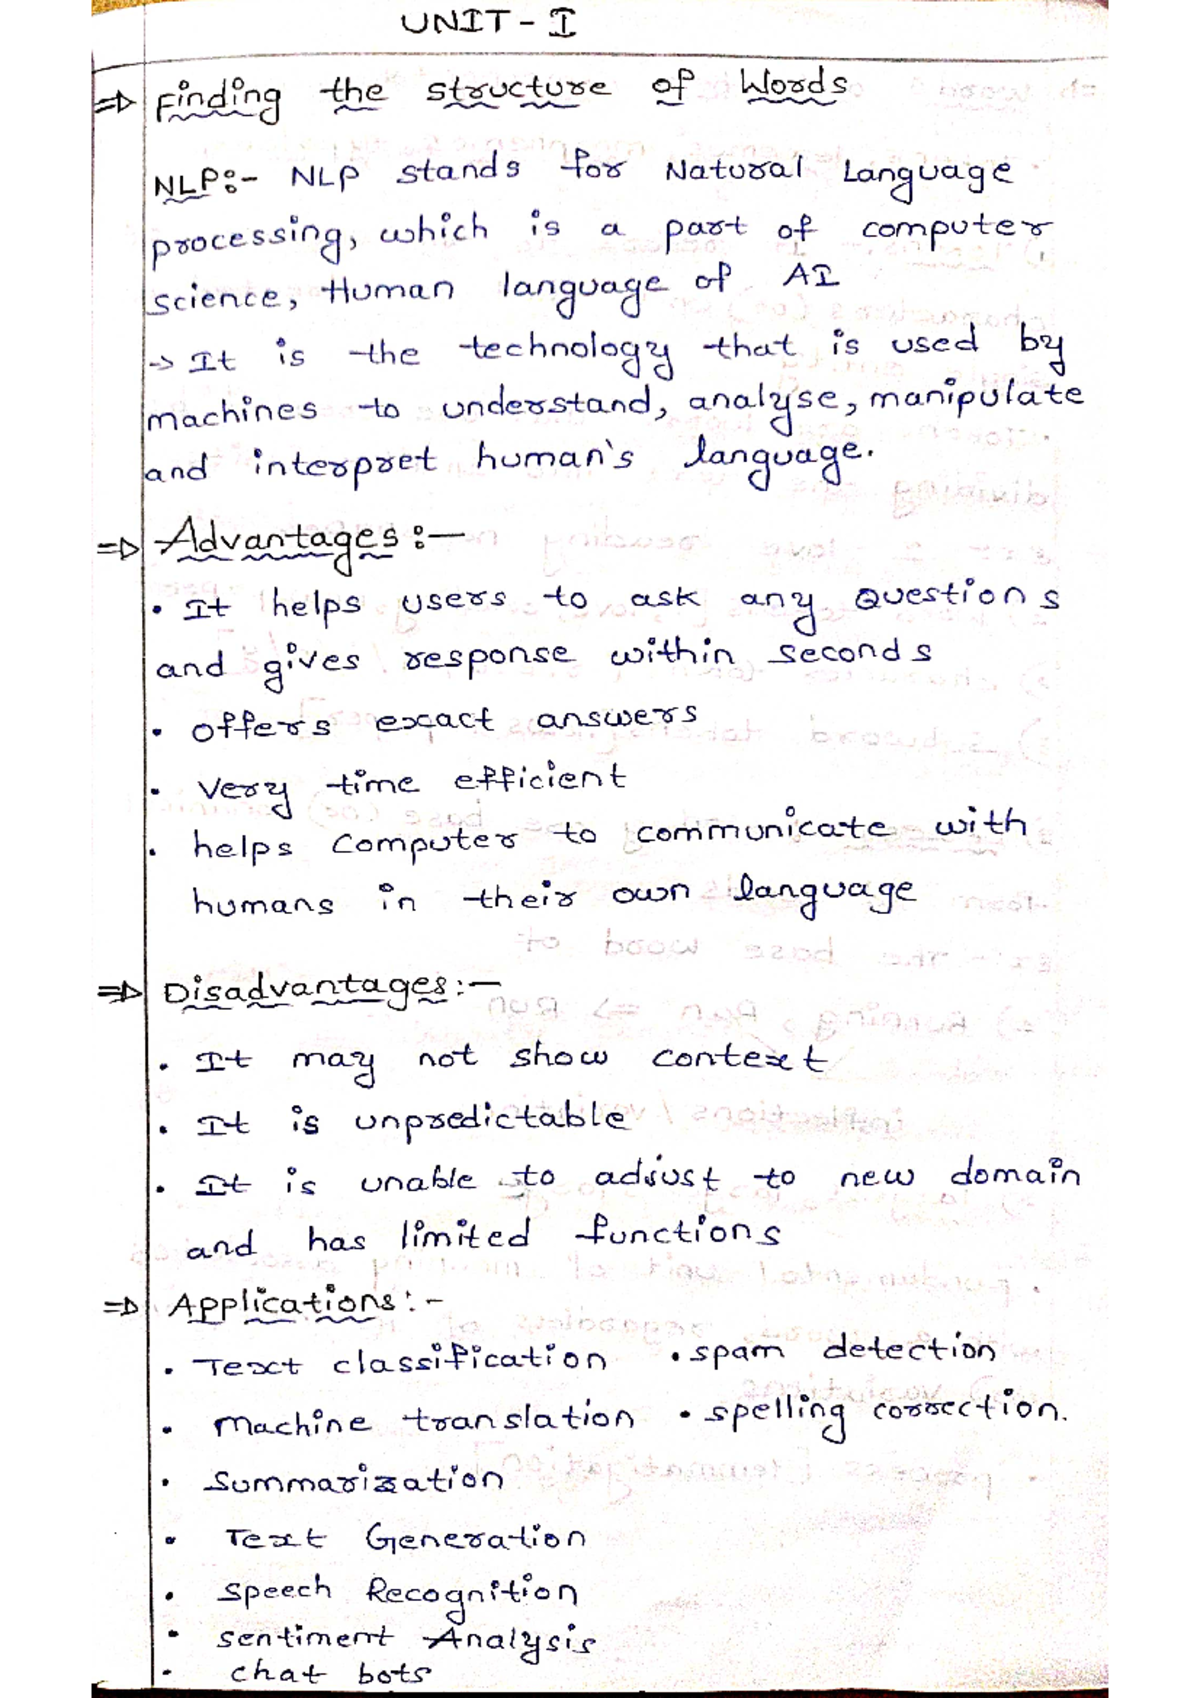 UNIT - I
⇒ Finding the structure of Words
NLP:- NLP stands for Natural Language
processing, which is a part of computer
science, Human language of AI
→ It is the technology that is used by
machines to understand, analyse, manipulate
and interpret human's language.
⇒ Advantages:-
• It helps users to ask any Questions
and gives response within seconds
• offers exact answers
• Very time efficient
• helps Computer to communicate with
humans in their own language
⇒ Disadvantages:-
• It may not show context
• It is unpredictable
• It is unable to adjust to new domain
and has limited functions
⇒ Applications:-
• Text classification • spam detection
• Machine translation • spelling correction.
• Summarization
• Text Generation
• Speech Recognition
• sentiment Analysis
• chat bots